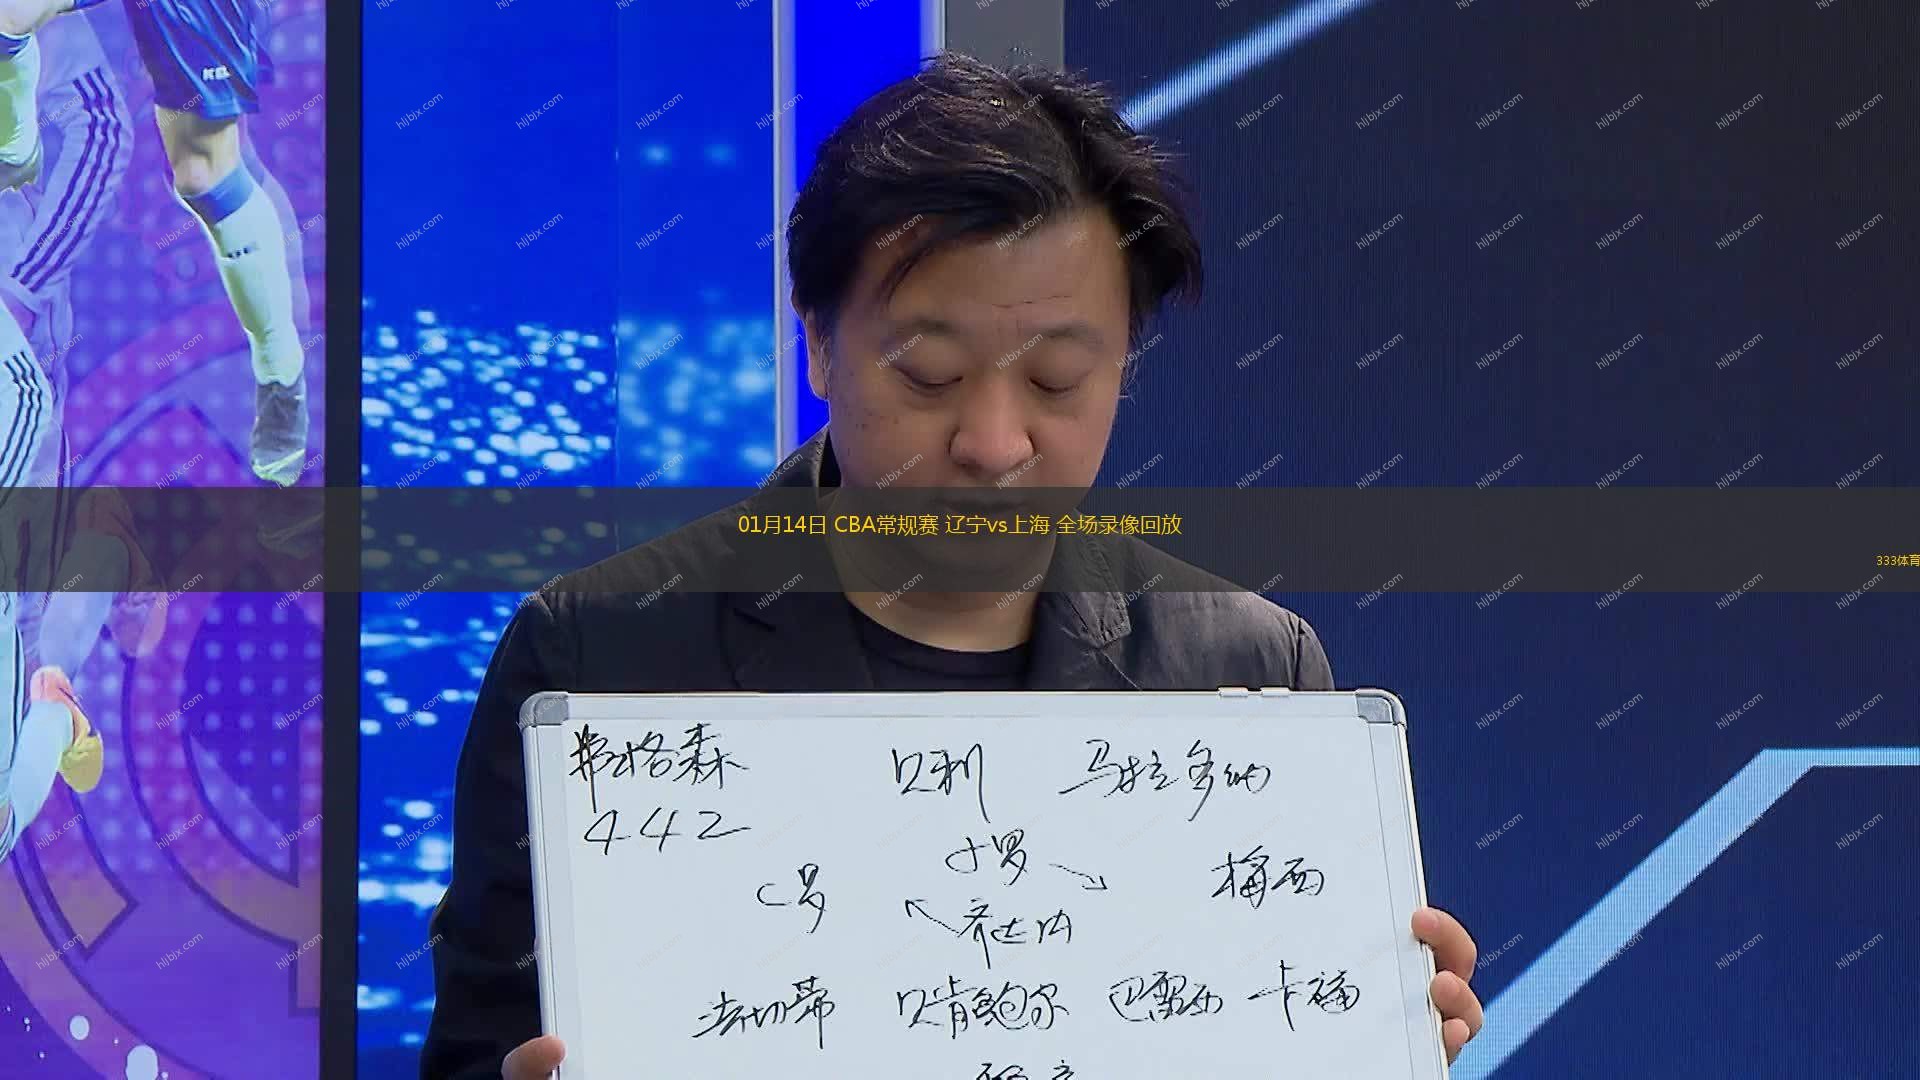 01月14日 CBA常规赛 辽宁vs上海 全场录像回放
333体育
弗格森 贝利 马拉多纳
442
大罗
C罗 梅西
齐达内
法切蒂 贝肯鲍尔 巴雷西 卡福
hljbjx.com